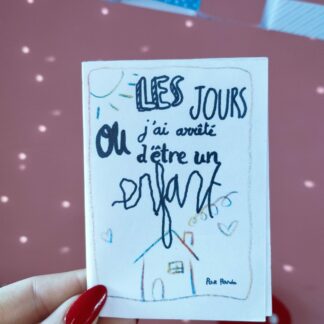 LES JOURS
OU j'ai arrêté
d'être un
enfant